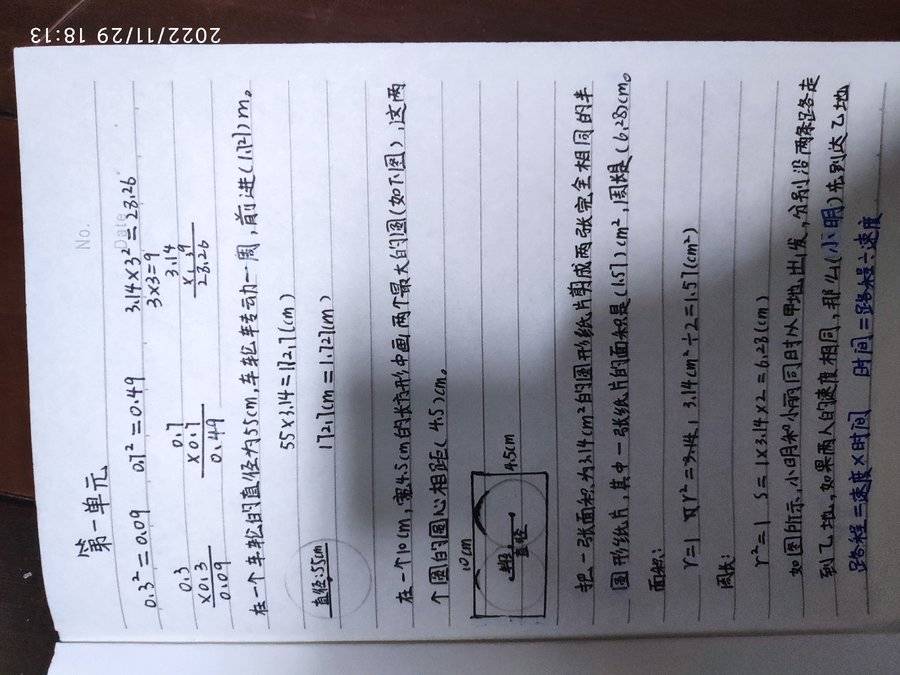 2022/11/29 18:13
No.
Date
第一单元
0.3²=0.09 0.7²=0.49 3.14×3²=28.26
3×3=9
0.3 0.7 3.14
×0.3 ×0.7 × 9
0.09 0.49 28.26
在一个车轮的直径为55cm,车轮车专动一周,前进(1.721)m。
55×3.14=172.7(cm)
直径:55cm 172.7cm=1.727(m)
在一个10cm,宽4.5cm的长方形中画两个最大的圆(如下图),这两
个圆的圆心相距(4.5)cm。
10cm
4.5cm
直径
把一张面积为3.14cm²的圆形纸片剪成两张完全相同的半
圆形纸片,其中一张纸片的面积是(1.57)cm²,周长是(6.28)cm。
面积:
r=1 πr²=3.14, 3.14cm²÷2=1.57(cm²)
周长:
r²=1 S=1×3.14×2=6.28(cm)
如图所示,小明和小丽同时从甲地出发,分别沿两条路走
到乙地,如果两人的速度相同,那么(小明)先到达乙地
路程=速度×时间 时间=路程÷速度